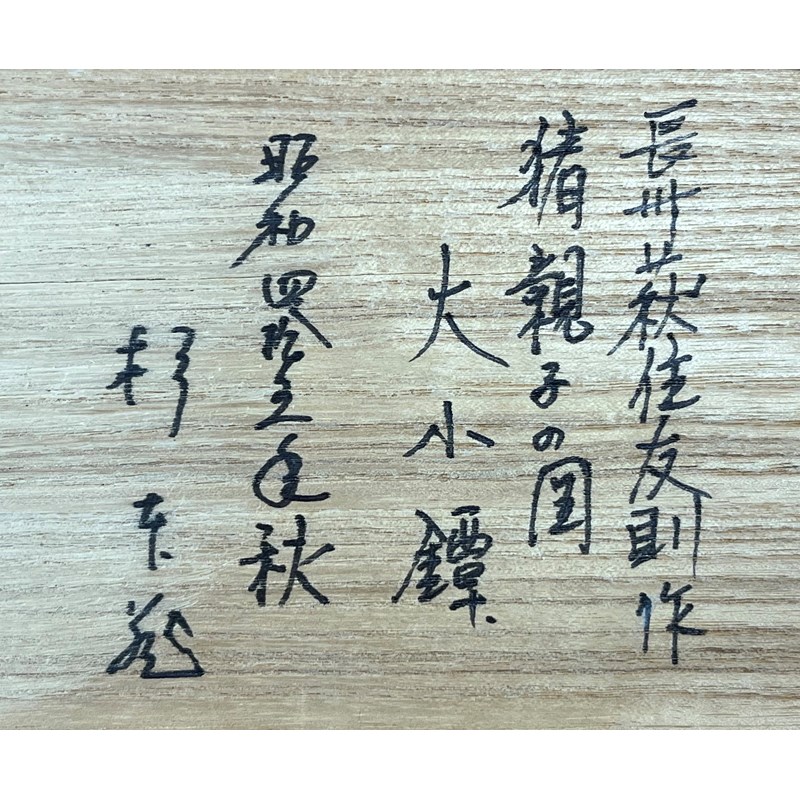 長州萩住友則作
猪親子の図
大小鐔
昭和四拾五年秋
杉本